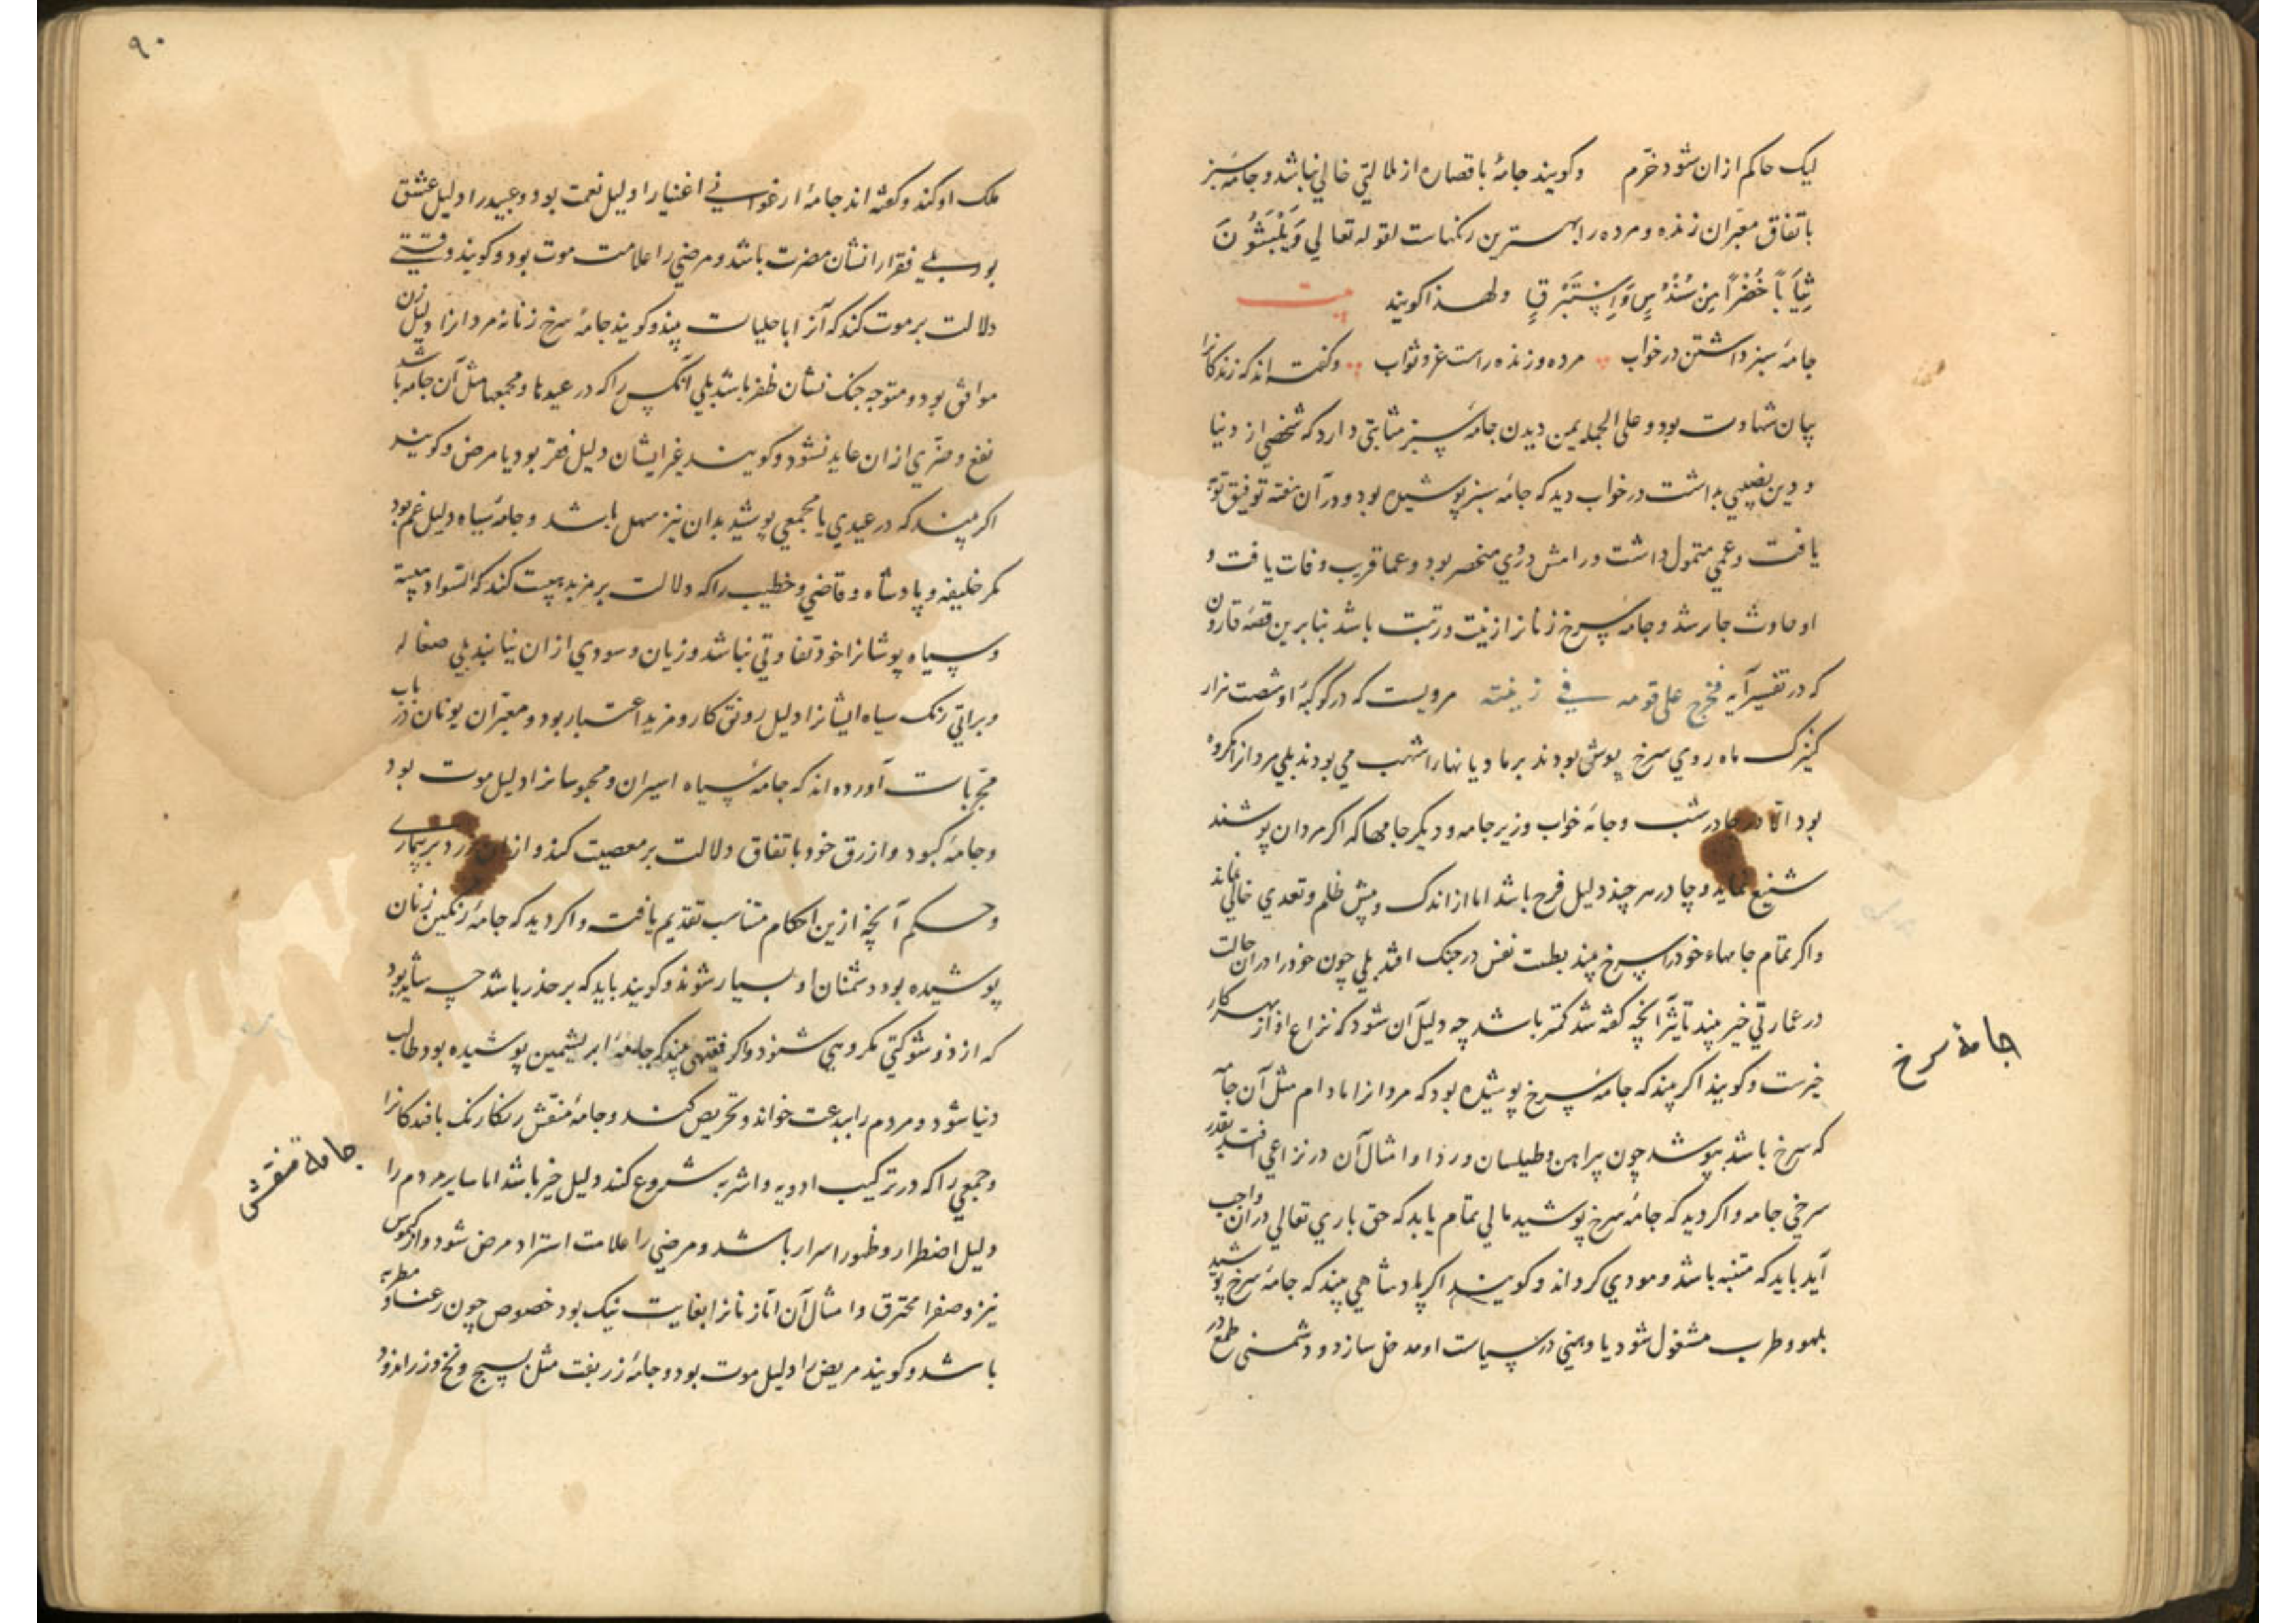 لیک حاکم از ان شود خرّم وکویند جامهٔ با قصاره از ملالتی خالی نباشد و جامهٔ سبز
باتفاق معبّران زنده و مرده را بهترین رنکهاست لقوله تعالی وَیَلْبَسُونَ
ثِیَاباً خُضْراً مِن سُنْدُسٍ وَاِسْتَبْرَقٍ ولهذا کویند بیت
جامهٔ سبز داشتن در خواب مرده و زنده راست عز و ثواب وکفته اند که زندکانرا
بیان شهادت بود و علی الجمله یمن دیدن جامهٔ سبز مثابتی دارد که شخصی از دنیا
و دین نصیبی نداشت در خواب دید که جامهٔ سبز پوشیده بود و در آن هفته توفیق توبه
یافت وعمی متمول داشت و رامش دروی منحصر بود وعما قریب وفات یافت و
او حاوث جار شد و جامهٔ سرخ زنانرا زینت و رتبت باشد بنابرین قصّهٔ قارون
که در تفسیر آیه فخرج علی قومه فی زینته مرویست که در کوکبهٔ او شصت هزار
کنیزک ماه روی سرخ پوش بودند بر مادیانها را شهب می بودند بلی مردانرا مکروه
بود الّا در چادر شب وجامهٔ خواب وزیر جامه و دیکر جامها که اکر مردان پوشند
شنیع نماید و چادر هر چند دلیل فرح باشد اما از اندک و بیش ظلم و تعدی خالی نماند
واکر تمام جامهاء خود را سرخ بیند بطست نفس در جنک افتد بلی چون خود را در ان حالت
در عمارتی خیر بیند تاثیر آنچه کفته شد کمتر باشد چه دلیل آن شود که نزاع او از بهر کار
خیرست وکویند اکر بیند که جامهٔ سرخ پوشیده بود که مردانرا مادام مثل آن جامهٔ
که سرخ باشد بپوشد چون پیراهن و طیلسان و ردا و امثال آن در نزاعی افتد بقدر
سرخی جامه واکر دید که جامهٔ سرخ پوشید مالی تمام یابد که حق باری تعالی در ان واجب
آید باید که متنبه باشد و مودی کرداند وکویند اکر پادشاهی بیند که جامهٔ سرخ پوشید
بلهو و طرب مشغول شود یا وهنی در سیاست او مدخل سازد و دشمنی طمع در
جامهٔ سرخ
۹۰
ملک او کند وکفته اند جامهٔ ارغوانی اغنیا را دلیل نعمت بود و عبید را دلیل عشق
بود بلی فقرا را نشان مضرت باشد و مرضی را علامت موت بود وکویند وقتی
دلالت بر موت کند که آنرا با حلیات بیند وکویند جامهٔ سرخ زنانه مردانرا دلیل زن
موافق بود و متوجه جنک نشان ظفر باشد بلی آنکس را که در عیدها و مجمعها مثل آن جامه باشد
نفع و ضرّی از ان عاید نشود وکویند غیر ایشان دلیل فقر بود یا مرض وکویند
اکر بیند که در عیدی یا مجمعی پوشید بدان نیز سهل باشد و جامهٔ سیاه دلیل غم بود
مکر خلیفه و پادشاه و قاضی و خطیب را که دلالت بر مزید هیبت کند که السّواد هیبة
وسیاه پوشانرا خود تفاوتی نباشد و زیان و سودی از ان نیابند بلی صغاله
و براتی رنک سیاه ایشانرا دلیل رونق کار و مزید اعتبار بود و معبّران یونان در باب
مجرّبات آورده اند که جامهٔ سیاه اسیران و محبوسانرا دلیل موت بود
و جامهٔ کبود و ازرق خود باتفاق دلالت بر معصیت کند و از ان زرد بر بیماری
و حکم آنچه ازین احکام متناسب تقدیم یافت واکر دید که جامهٔ رنکین زنان
پوشیده بود دشمنان او بسیار شوند وکویند باید که بر حذر باشد چه شاید بود
که از ذو شوکتی مکروهی شنود واکر فقیهی بیند که جامهٔ ابریشمین پوشیده بود طالب
دنیا شود و مردم را ببدعت خواند و تحریص کند و جامهٔ منقّش رنکارنک بافندکانرا
و جمعی را که در ترکیب ادویه و اشربه شروع کنند دلیل خیر باشد اما سایر مردم را
دلیل اضطرار و ظهور اسرار باشد و مرضی را علامت اشتداد مرض شود و از کیموس
نیز و صفرا محترق و امثال آن امّا زنانرا بغایت نیک بود خصوص چون رعنا و مطربه
باشد وکویند مریض را دلیل موت بود و جامهٔ زربفت مثل نسیج و نخ و زراندود
جامهٔ منقش